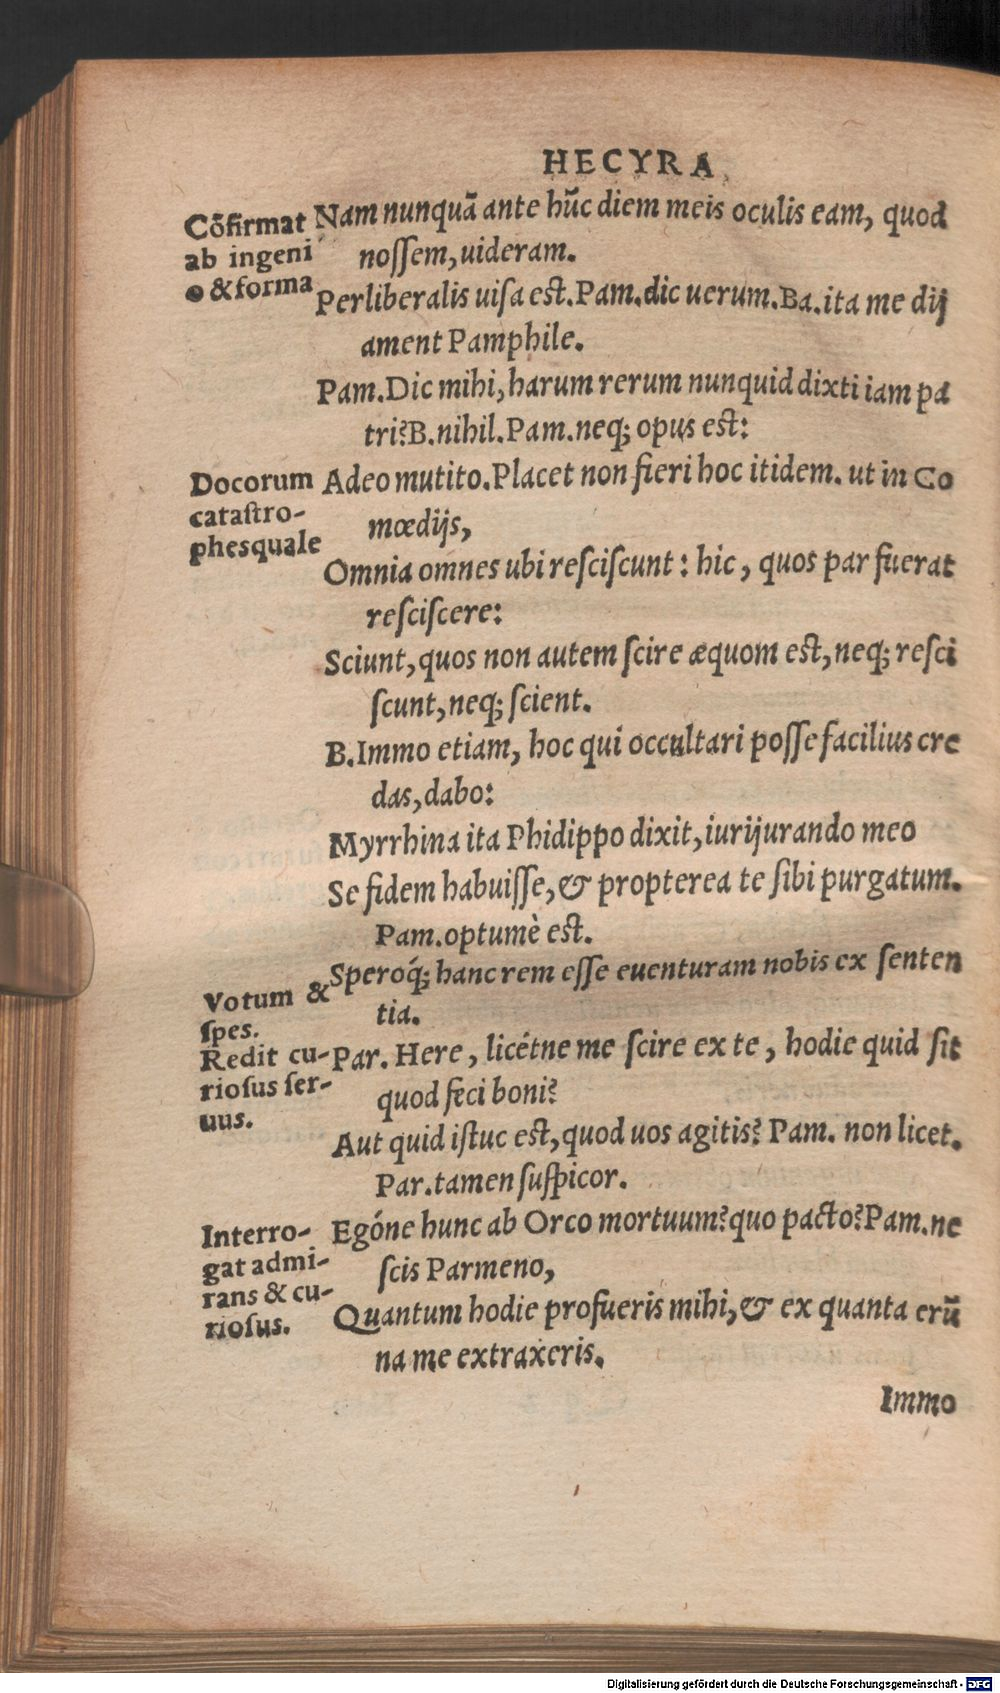 HECYRA
Cõfirmat
ab ingeni
o &forma
Nam nunquã ante hũc diem meis oculis eam, quod
nossem, uideram.
Perliberalis uisa est. Pam. dic uerum. Ba. ita me dij
ament Pamphile.
Pam. Dic mihi, harum rerum nunquid dixti iam pa
tri? B. nihil. Pam. neq; opus est:
Docorum
catastro-
phesquale
Adeo mutito. Placet non fieri hoc itidem. ut in Co
mœdijs,
Omnia omnes ubi resciscunt: hic, quos par fuerat
resciscere:
Sciunt, quos non autem scire æquom est, neq; resci
scunt, neq; scient.
B. Immo etiam, hoc qui occultari posse facilius cre
das, dabo:
Myrrhina ita Phidippo dixit, iurijurando meo
Se fidem habuisse, & propterea te sibi purgatum.
Pam. optumè est.
Votum &
spes.
Speroq́; hanc rem esse euenturam nobis ex senten
tia.
Redit cu-
riosus ser-
uus.
Par. Here, licétne me scire ex te, hodie quid sit
quod feci boni?
Aut quid istuc est, quod uos agitis? Pam. non licet.
Par. tamen suspicor.
Interro-
gat admi-
rans & cu-
riosus.
Egóne hunc ab Orco mortuum? quo pacto? Pam. ne
scis Parmeno,
Quantum hodie profueris mihi, & ex quanta erũ
na me extraxeris.
Immo
Digitalisierung gefördert durch die Deutsche Forschungsgemeinschaft - DFG